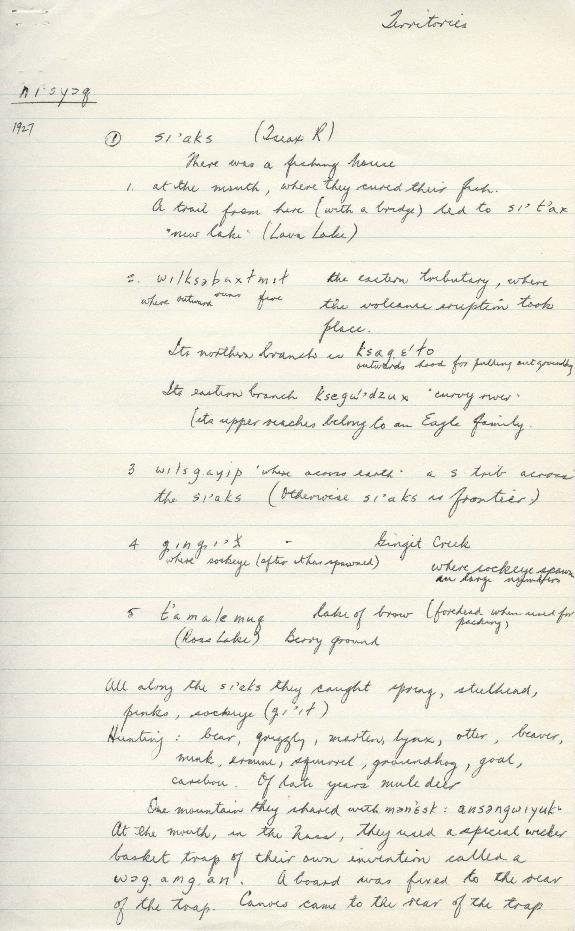 Territories
ni·syɔq
1927
① si'aks (Tseax R)
There was a fishing house
1. at the mouth, where they cured their fish.
A trail from here (with a bridge) led to si't'ax
"new lake" (Lava Lake)
2. wilksəbaxtmit the eastern tributary, where
where outward runs fire the volcanic eruption took
place.
Its northern branch is ksag.ɛ'to
outwards head for pulling out groundhog
Its eastern branch ksegwi'dzux "curvy river"
(its upper reaches belong to an Eagle family.
3 wilsg.ayip "where across earth" a s trib across
the si'aks (Otherwise si'aks is frontier)
4 g.ing.i'x̌ - Gingit Creek
where sockeye (after it has spawned) where sockeye spawn
in large numbers
5 t'amalemuq Lake of brow (forehead when used for
packing)
(Ross Lake) Berry ground
All along the si'aks they caught spring, steelhead,
pinks, sockeye (g.i'it)
Hunting: bear, grizzly, marten, lynx, otter, beaver,
mink, ermine, squirrel, groundhog, goat,
caribou. Of late years mule deer
One mountain they shared with mənɛsk: ansəngwiyuk·
At the mouth, in the Nass, they used a special wicker
basket trap of their own invention called a
wɔg.amg.an. A board was fixed to the rear
of the trap. Canoes came to the rear of the trap